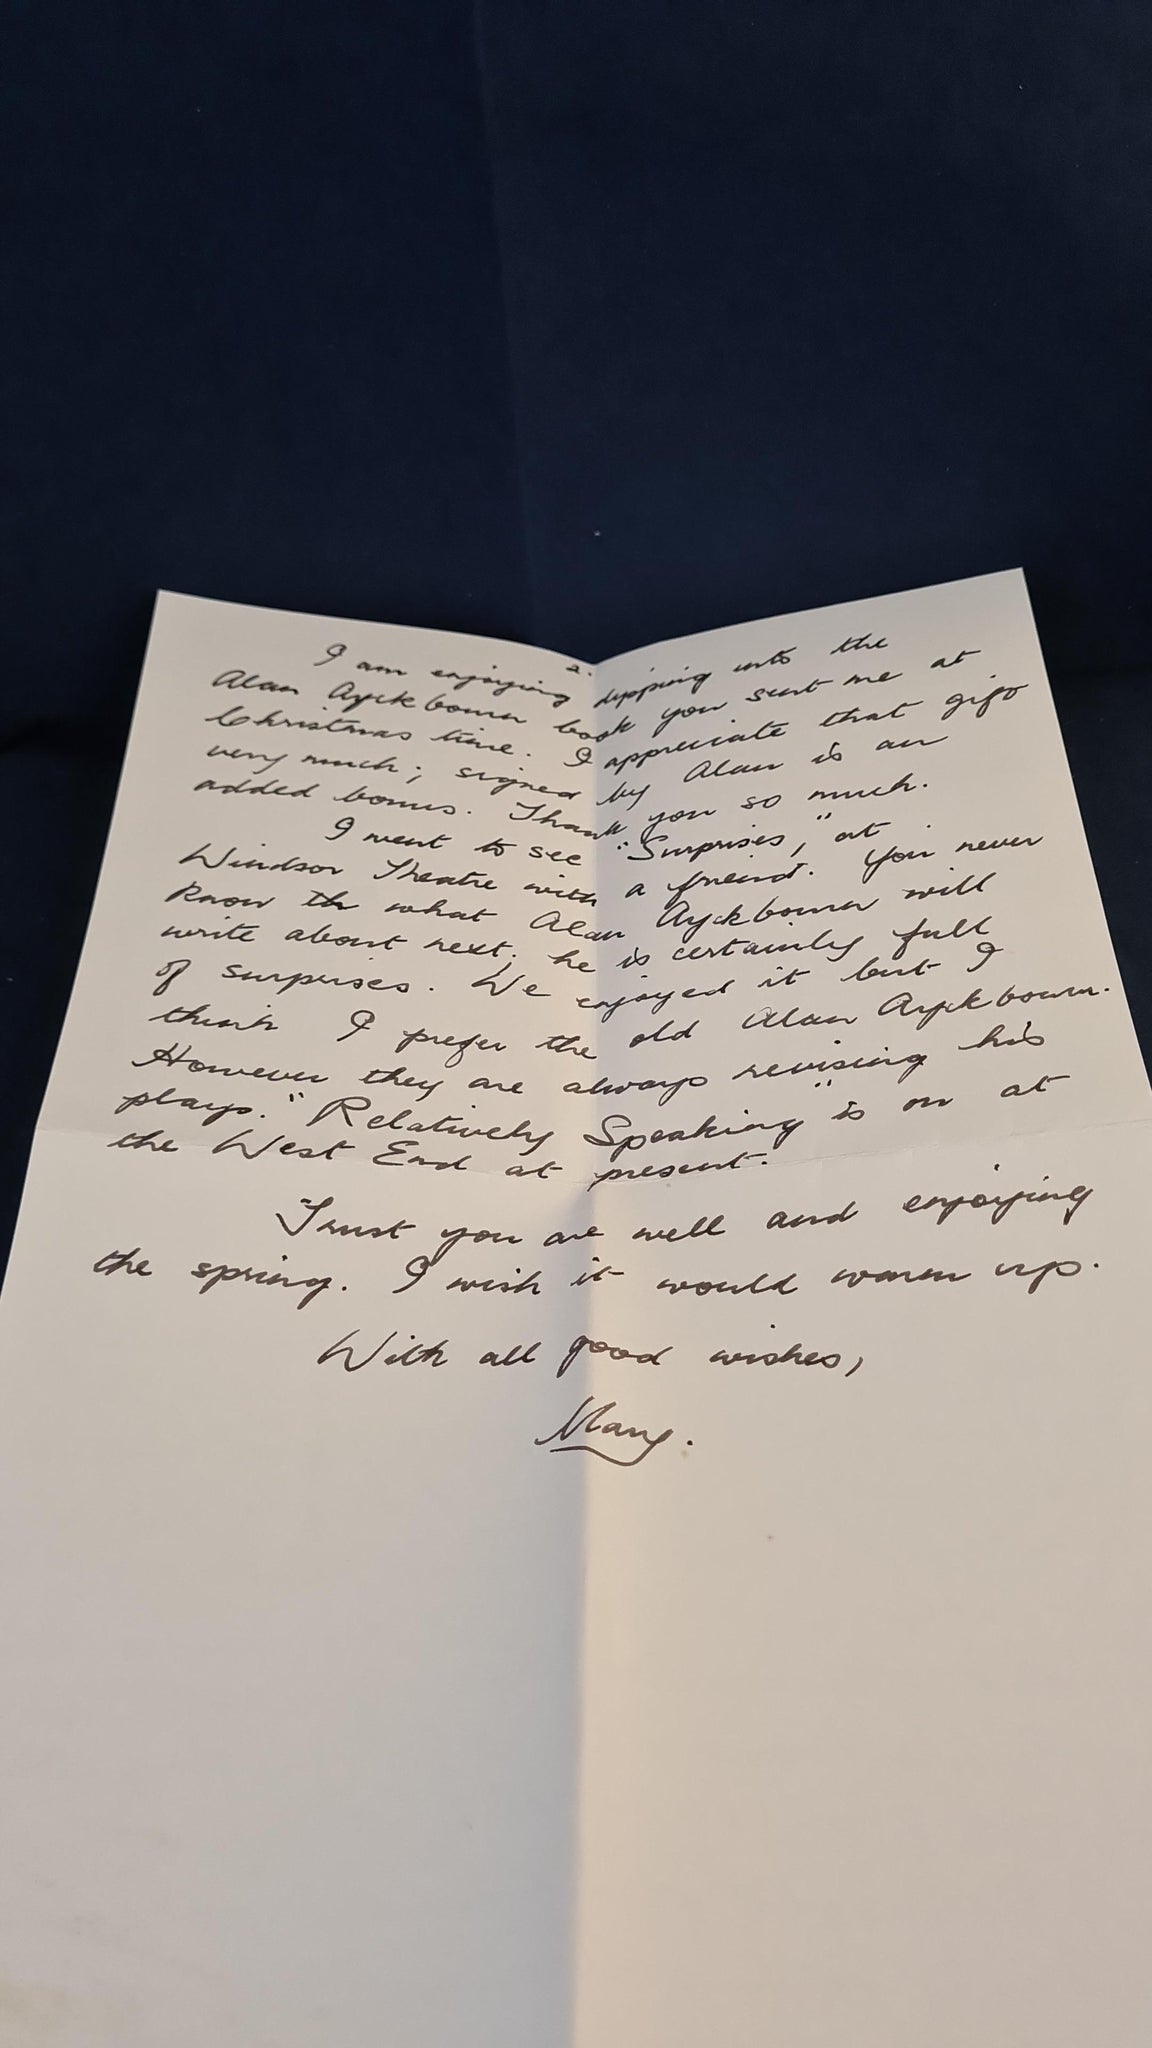 2.
I am enjoying dipping into the
Alan Ayckbourn book you sent me at
Christmas time. I appreciate that gift
very much; signed by Alan is an
added bonus. Thank you so much.
I went to see "Surprises," at
Windsor Theatre with a friend. You never
know th what Alan Ayckbourn will
write about next; he is certainly full
of surprises. We enjoyed it but I
think I prefer the old Alan Ayckbourn.
However they are always revising his
plays. "Relatively Speaking" is on at
the West End at present.
Trust you are well and enjoying
the spring. I wish it would warm up.
With all good wishes,
Mary.